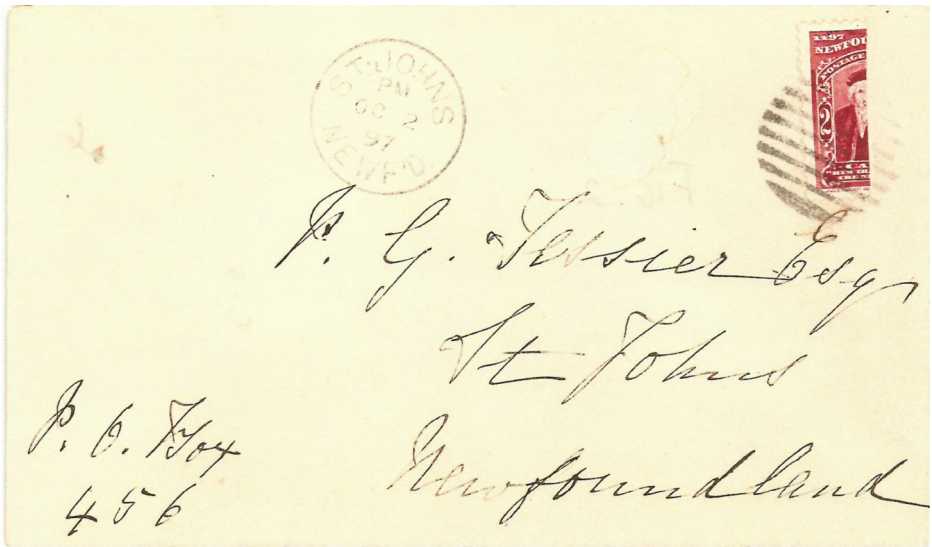 ST. JOHNS
PM
OC 2
97
NEWF'D.
1497
NEWFOU
POSTAGE
2
CA
P. G. Tessier Esq
St Johns
Newfoundland
P. O. Box
456